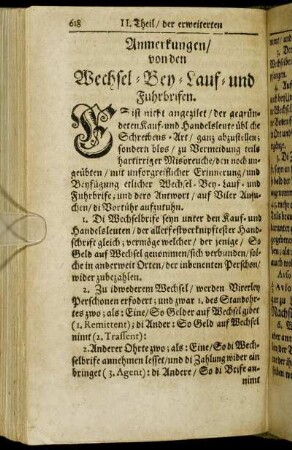 618 II. Theil / der erweiterten
Anmerkungen /
von den
Wechsel-Bey-Lauf-und
Fuhrbrifen.
ES ist nicht angezilet / der gegrün-
deten Kauf-und Handelsleute übliche
Schreibens-Art / ganz abzustellen;
sondern blos / zu Vermeidung teils
hartirriger Misbreuche / den noch un-
geübten / mit unforgreiflicher Erinnerung / und
Beyfügung etlicher Wechsel-Bey-Lauf-und
Fuhrbrife, und dere Antwort / auf Viler Ansu-
chen / di Vortühr aufzutuhn.
1. Di Wechselbrife seyn unter den Kauf-und
Handelsleuten / der allerfestverknipftester Hand-
schrift gleich; vermöge welcher / der jenige / So
Geld auf Wechsel genommen / sich verbunden / sol-
che in anderweit Orten / der inbenenten Perschon /
wider zubezahlen.
2. Zu idwederem Wechsel / werden Vierley
Perschonen erfodert; und zwar 1. des Standohr-
tes zwo; als: Eine / So Gelder auf Wechsel gibet
(1. Remittent); di Ander: So Geld auf Wechsel
nimt (2. Trassent):
2. Anderer Ohrte zwo; als: Eine / So di Wech-
selbrife annehmen lesset / und di Zahlung wider ein
bringet (3. Agent): di Andere / So di Brife an-
nimt